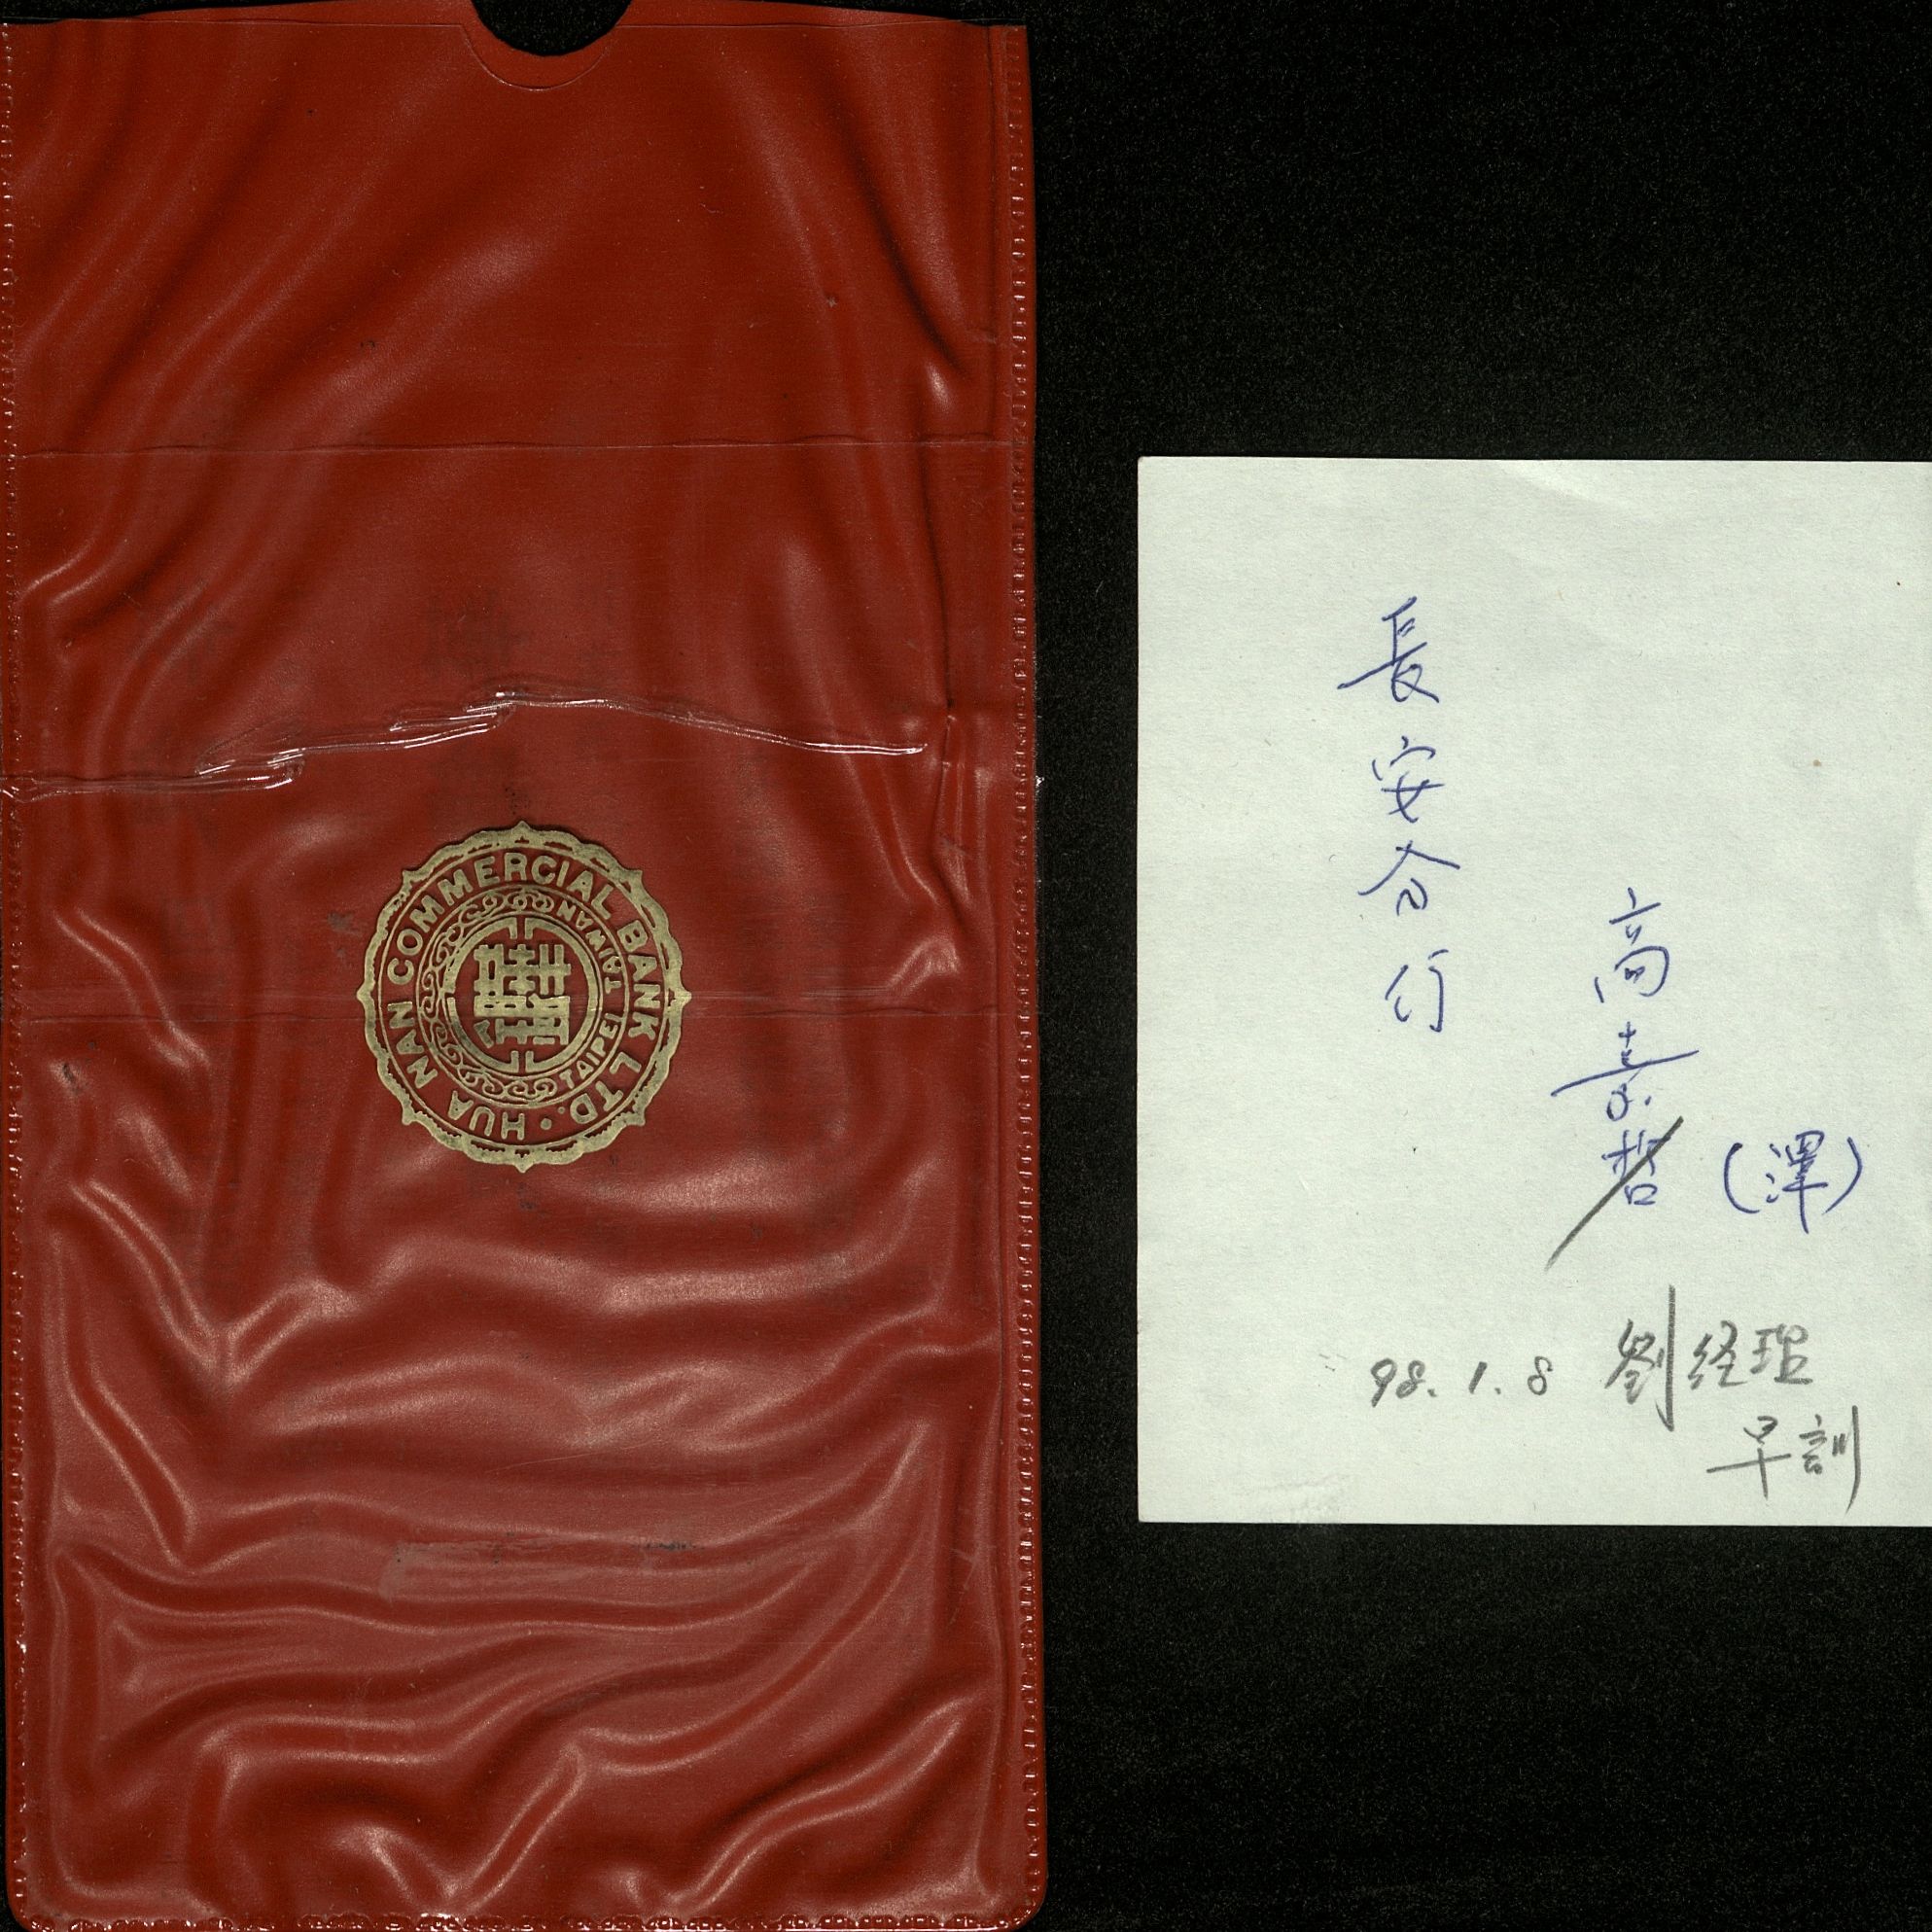 HUA NAN COMMERCIAL BANK LTD.
TAIPEI TAIWAN
長安分行
高嘉哲(澤)
98.1.8 劉经理
早訓